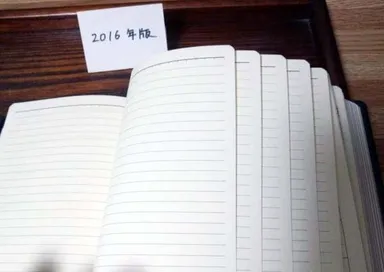 2016年版